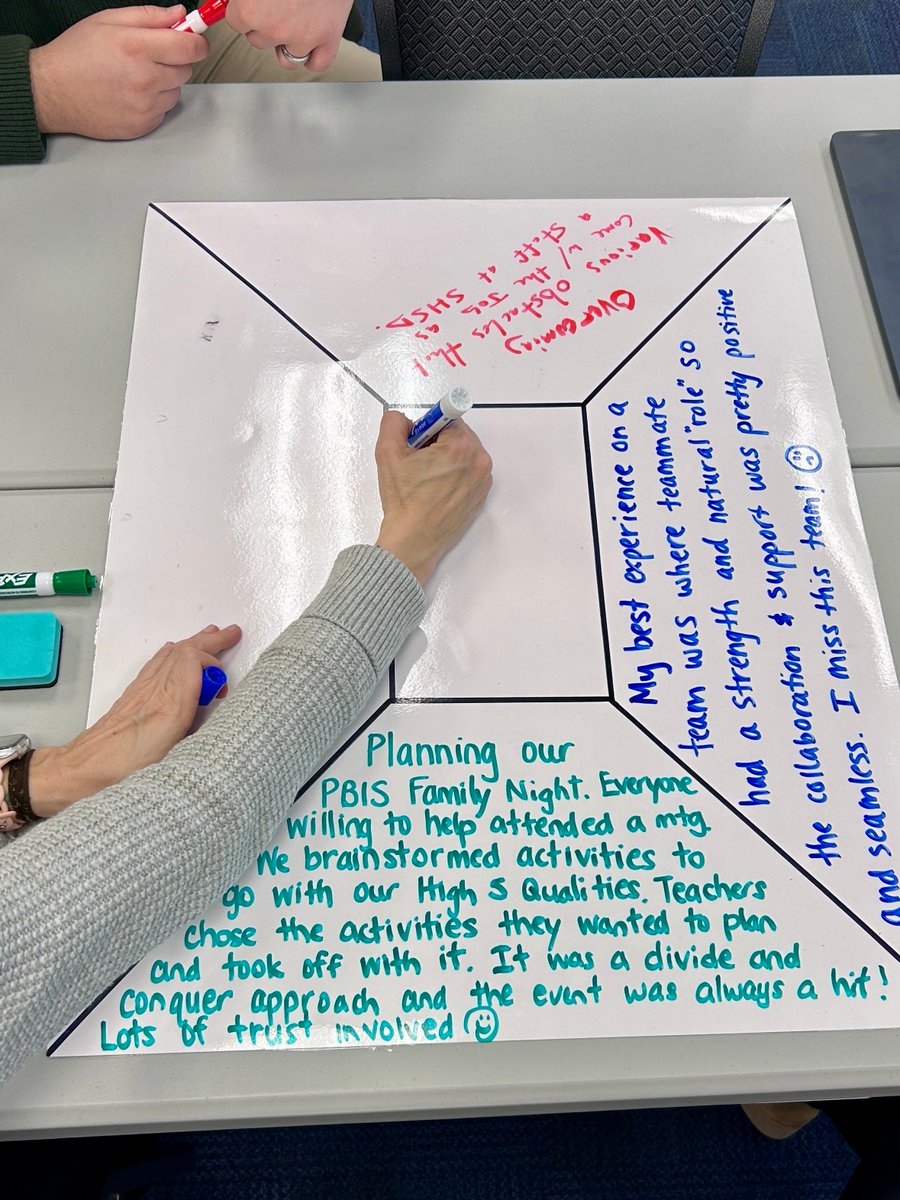 Overcoming
various obstacles that
come w/ the job as
a staff at SHSD.
My best experience on a
team was where teammate
had a strength and natural "role" so
the collaboration & support was pretty positive
and seamless. I miss this team!
Planning our
PBIS Family Night. Everyone
willing to help attended a mtg.
We brainstormed activities to
go with our High 5 Qualities. Teachers
chose the activities they wanted to plan
and took off with it. It was a divide and
conquer approach and the event was always a hit!
Lots of trust involved